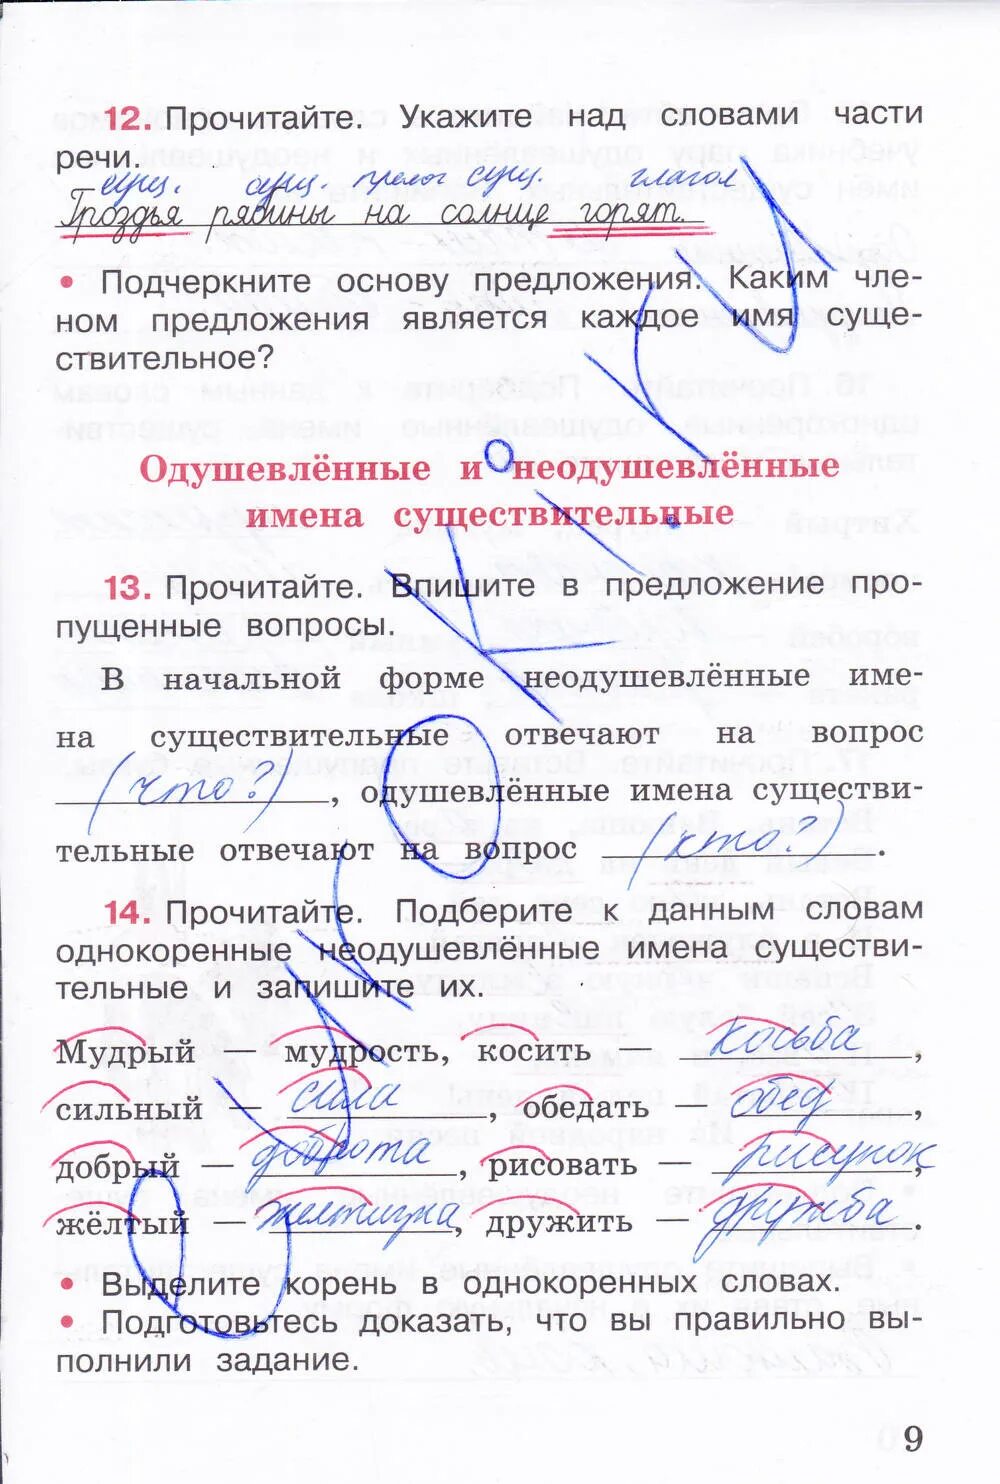 12. Прочитайте. Укажите над словами части
речи.
сущ. сущ. предлог сущ. глагол
Гроздья рябины на солнце горят.
• Подчеркните основу предложения. Каким чле-
ном предложения является каждое имя суще-
ствительное?
Одушевлённые и неодушевлённые
имена существительные
13. Прочитайте. Впишите в предложение про-
пущенные вопросы.
В начальной форме неодушевлённые име-
на существительные отвечают на вопрос
(что?), одушевлённые имена существи-
тельные отвечают на вопрос (кто?).
14. Прочитайте. Подберите к данным словам
однокоренные неодушевлённые имена существи-
тельные и запишите их.
Мудрый — мудрость, косить — косьба,
сильный — сила, обедать — обед,
добрый — доброта, рисовать — рисунок,
жёлтый — желтизна, дружить — дружба.
• Выделите корень в однокоренных словах.
• Подготовьтесь доказать, что вы правильно вы-
полнили задание.
9